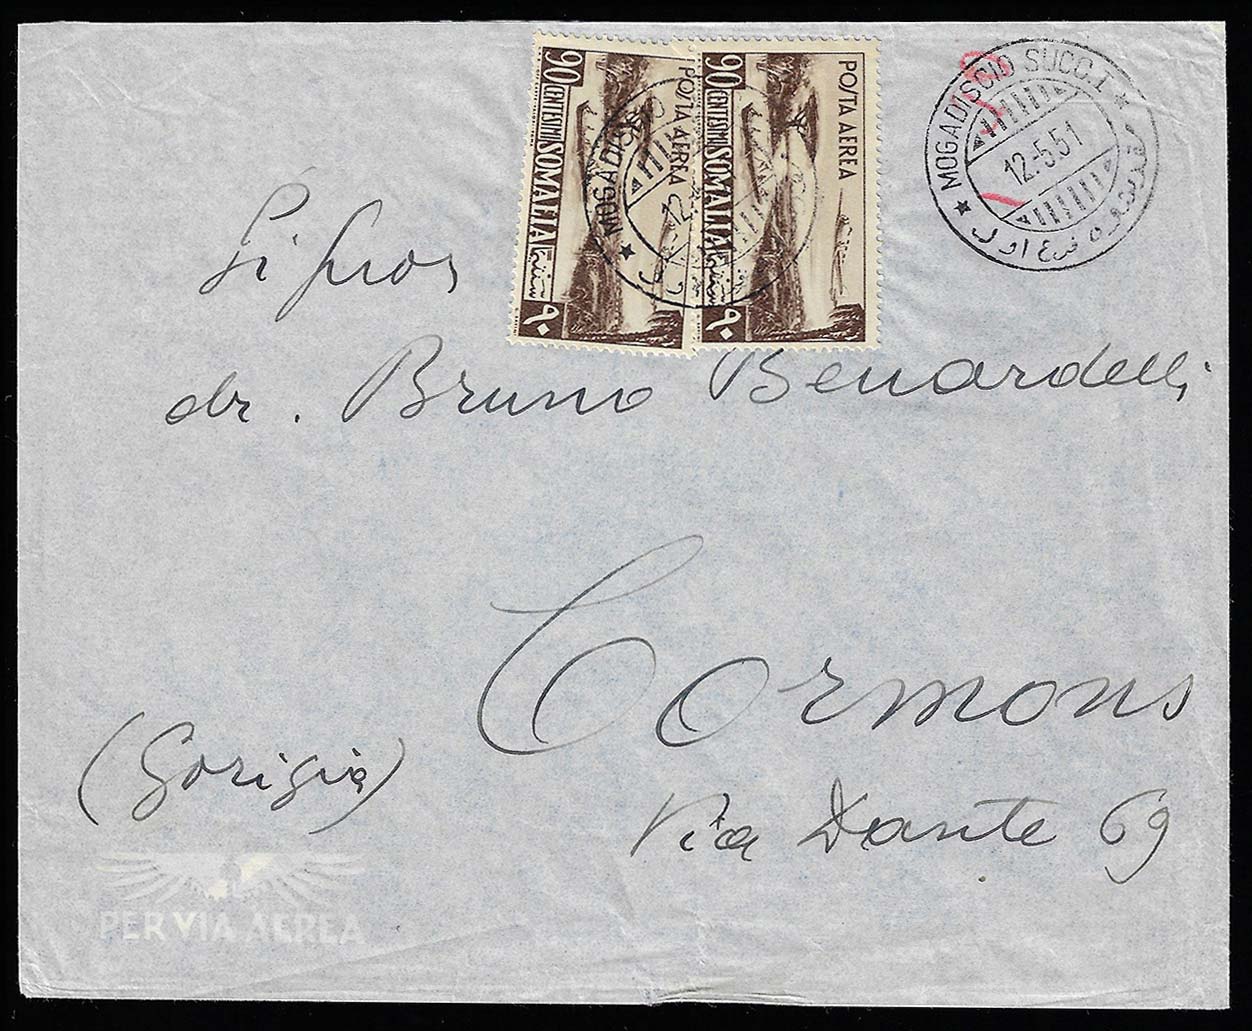 POSTA AEREA
90 CENTESIMI SOMALIA
٩٠
POSTA AEREA
90 CENTESIMI SOMALIA
٩٠
MOGADISCIO
12
MOGADISCIO SUCC. 1
12.-5.51
dr. Bruno Benardelli
Cormons
(Gorizia)
Via Dante 69
PER VIA AEREA